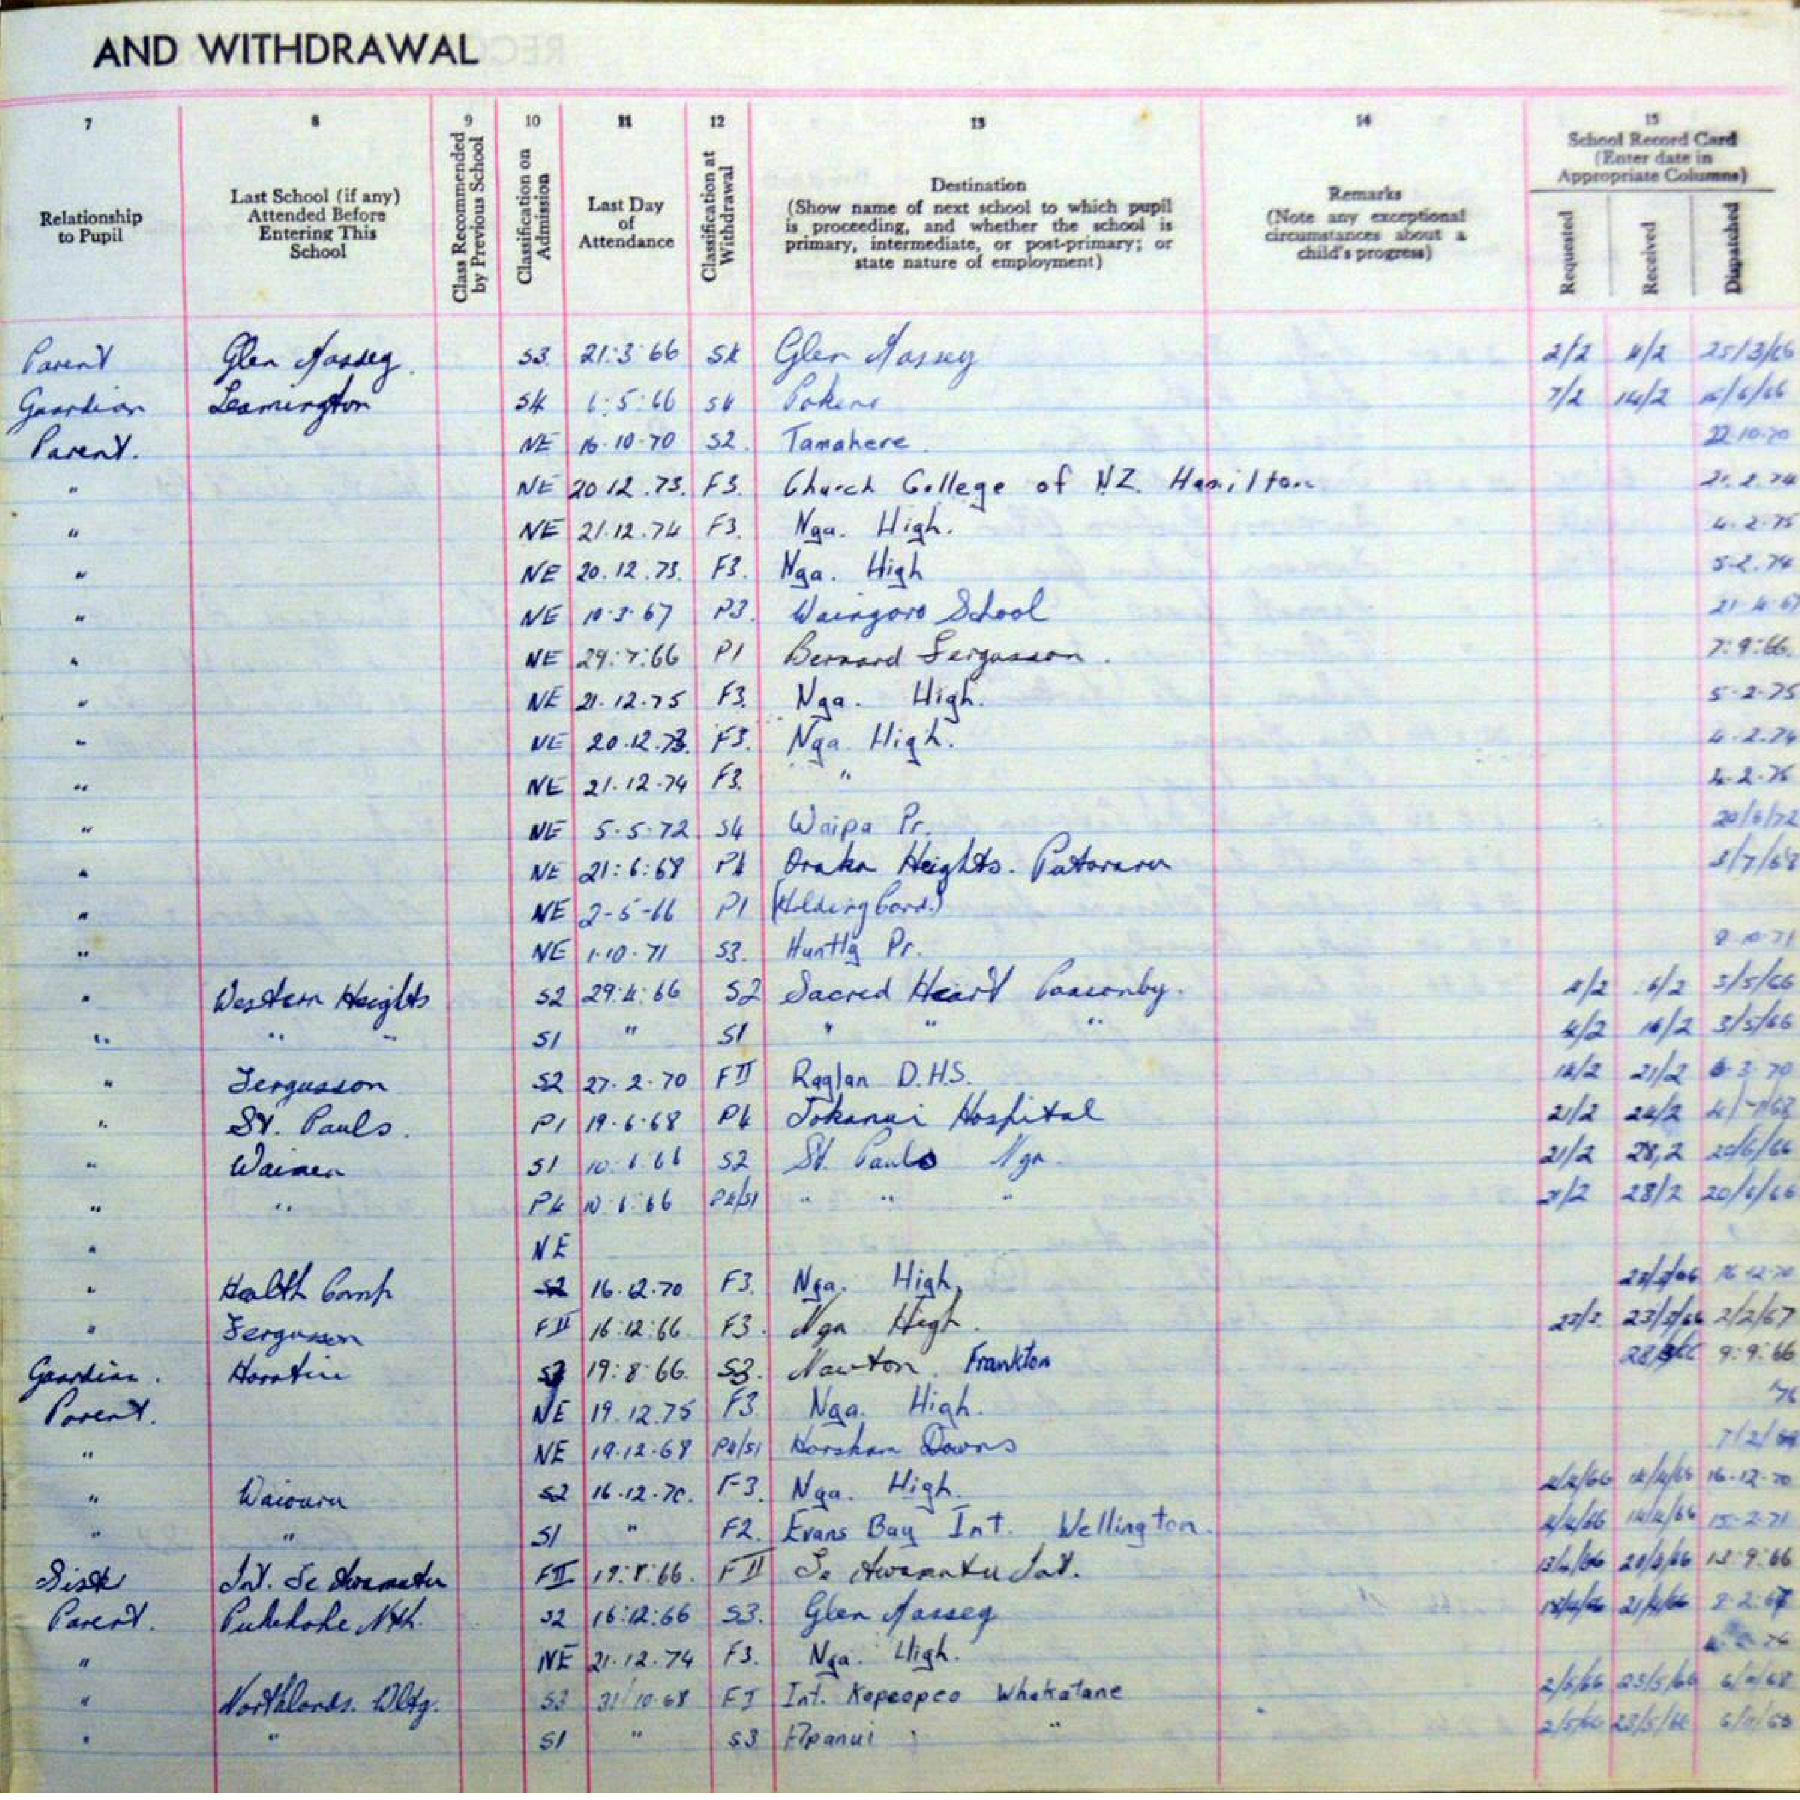 AND WITHDRAWAL
7 8 9 10 11 12 13 14 15
Relationship to Pupil
Last School (if any) Attended Before Entering This School
Class Recommended by Previous School
Classification on Admission
Last Day of Attendance
Classification at Withdrawal
Destination (Show name of next school to which pupil is proceeding, and whether the school is primary, intermediate, or post-primary; or state nature of employment)
Remarks (Note any exceptional circumstances about a child's progress)
School Record Card (Enter date in Appropriate Columns)
Requested Received Dispatched
Parent Glen Massey S3 21:3:66 S4 Glen Massey 2/2 4/2 25/3/66
Guardian Leamington S4 6:5:66 S4 Pokeno 7/2 14/2
Parent. NE 16.10.70 S2. Tamahere 22.10.70
" NE 20.12.73. F3. Church College of N.Z. Hamilton 21.2.74
" NE 21.12.74 F3. Nga. High. 4.2.75
" NE 20.12.73. F3. Nga. High 5.2.74
" NE 10.3.67 P3. Waingaro School 21.4.67
" NE 29:7:66 P1 Bernard Fergusson. 7:9:66.
" NE 21.12.75 F3. Nga. High. 5.2.75
" NE 20.12.73. F3. Nga. High. 4.2.74
" NE 21.12.74 F3. " 4.2.75
" NE 5.5.72 S4 Waipa Pr. 20/6/72
" NE 21:6:68 P4 Oraka Heights. Putaruru 3/7/68
" NE 2-5-66 P1 (Holding Card.)
" NE 1.10.71 S3. Huntly Pr.
" Western Heights S2 29:4:66 S2 Sacred Heart Ponsonby. 4/2 3/5/66
" " " S1 " S1 " " " 4/2 16/2 3/5/66
" Fergusson S2 27.2.70 FII Raglan D.H.S. 14/2 21/2 6.3.70
" St. Pauls. P1 19.6.68 P4 Tokanui Hospital 21/2 24/2
" Waimea S1 10.6.66 S2 St. Pauls Nga. 21/2 28/2 20/6/66
" " P4 10.6.66 P4/S1 " " " 21/2 28/2 20/6/66
" NE
" Health Camp S2 16.12.70 F3. Nga. High. 16.12.70
" Fergusson FII 16.12.66. F3. Nga High. 23/3 23/3/66 2/2/67
Guardian. Horotiu S3 19:8:66. S3. Nawton. Frankton 9:9:66
Parent. NE 19.12.75 F3. Nga. High.
" NE 19.12.68 P4/S1 Horsham Downs
" Waiouru S2 16.12.70. F3. Nga. High. 4/4/66 14/4/66 16-12-70
" " S1 " F2. Evans Bay Int. Wellington. 4/4/66 14/4/66 15-2-71
Sister Int. Te Awamutu FII 19:8:66. FII Te Awamutu Int. 13/4/66 13:9:66
Parent. Pukekohe Nth. S2 16:12:66 S3. Glen Massey 21/4/66 8.2.67
" NE 21.12.74 F3. Nga. High.
" Northlands. Wltg. S3 31/10.68 FI Int. Kopeopeo Whakatane 2/5/66 23/5/66
" " S1 " S3 Apanui " 2/5/66 23/5/66